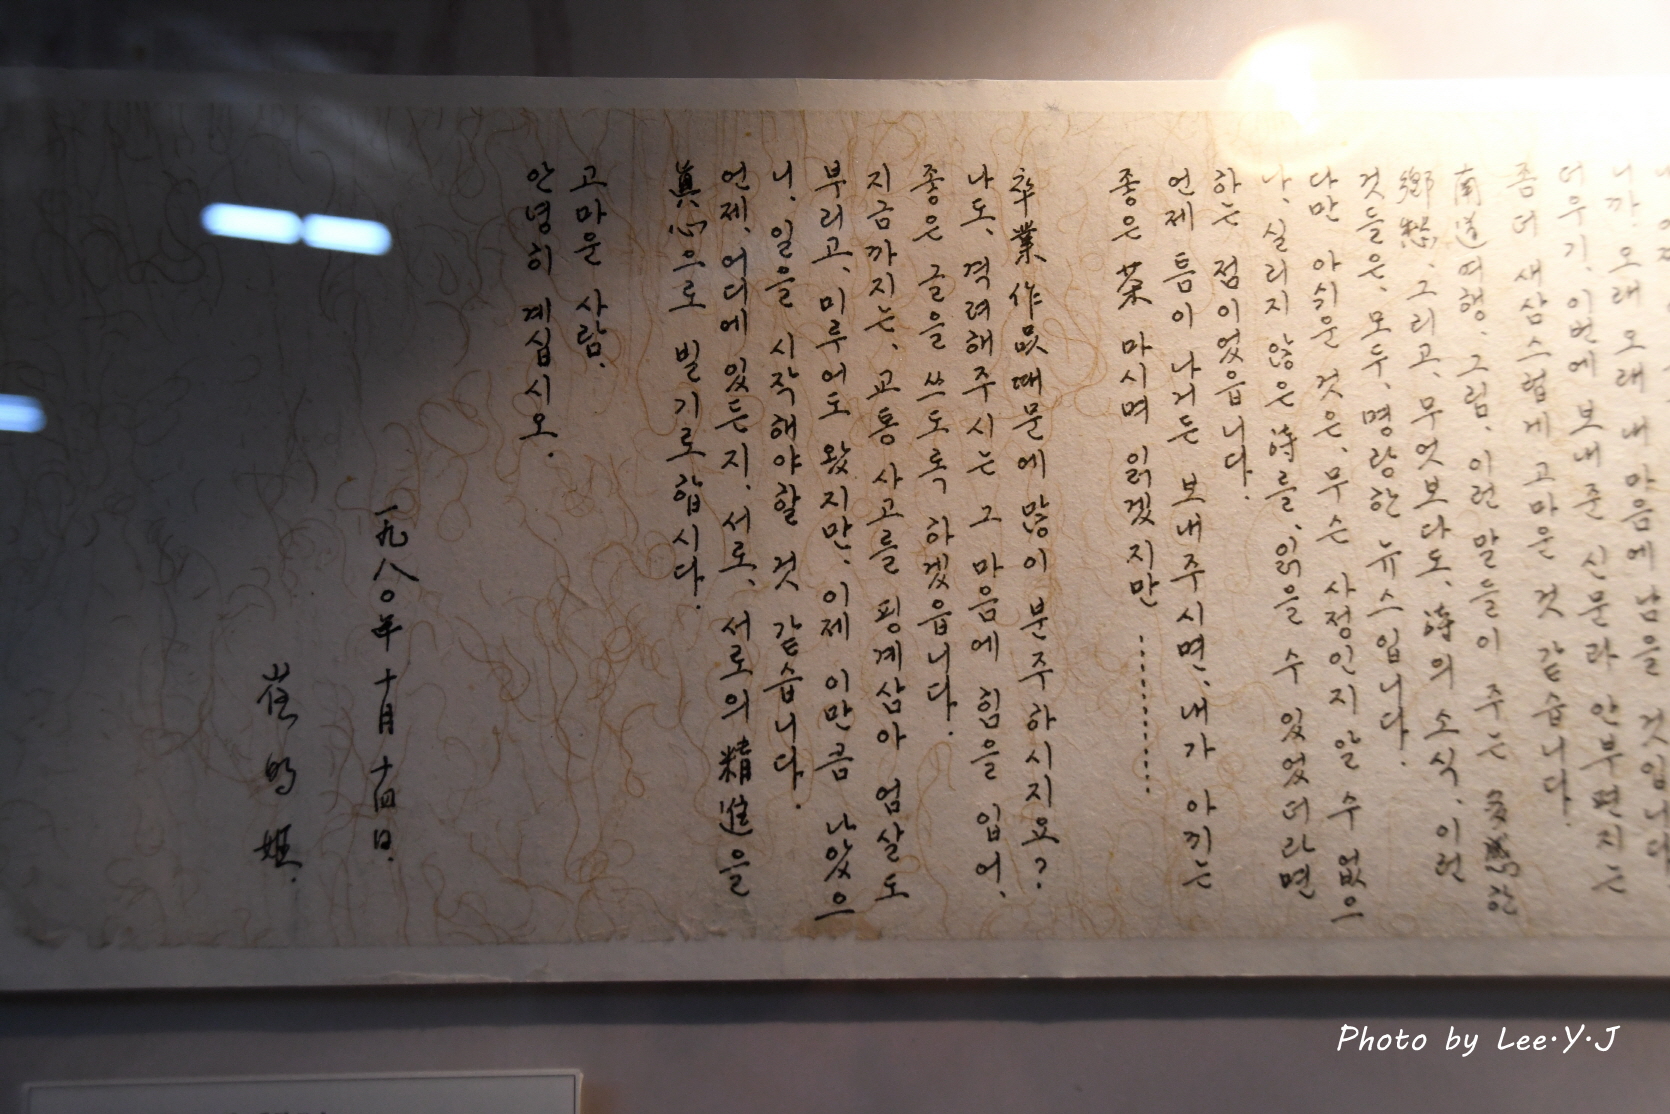 니까. 오래 오래 내 마음에 남을 것입니다.
더우기, 이번에 보내준 신문과 안부편지는
좀 더 새삼스럽게 고마운 것 같습니다.
南道여행, 그럼, 이런 말들이 주는
鄕愁, 그리고, 무엇보다도, 詩의 소식, 이런
것들은, 모두, 명랑한 뉴스입니다.
다만 아쉬운 것은, 무슨 사정인지 알 수 없으
나, 실리지 않은 詩를, 읽을 수 있었더라면
하는 점이었읍니다.
언제 틈이 나거든 보내주시면, 내가 아끼는
좋은 茶 마시며 읽겠지만 ..........
卒業作品 때문에 많이 분주하시지요?
나도, 격려해주시는 그 마음에 힘을 입어,
좋은 글을 쓰도록 하겠읍니다.
지금까지는, 교통사고를 핑계삼아 엄살도
부리고, 미루어도 왔지만, 이제 이만큼 나았으
니, 일을 시작해야할 것 같습니다.
언제, 어디에 있든지, 서로, 서로의 精進을
眞心으로 빌기로합시다.
고마운 사람.
안녕히 계십시오.
一九八〇年 十月 十四日.
崔明姬.
Photo by Lee·Y·J